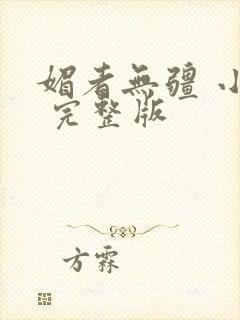 媚者無疆 小
完整版
方霖